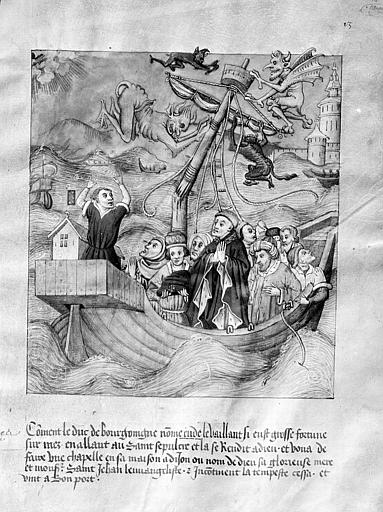 13
Coment le duc de bourgoingne nõme eude le vaillant si eust grosse fortune
sur mer en allant au Saint sepulcre et la se Rendit a dieu · et voua de
faire vne chapelle en sa maison a dijon ou nom de dieu sa glorieuse mere
et monsr Saint Jehan leuuangeliste · 2 Incõtinent la tempeste cessa · et
vint a Bon port ·